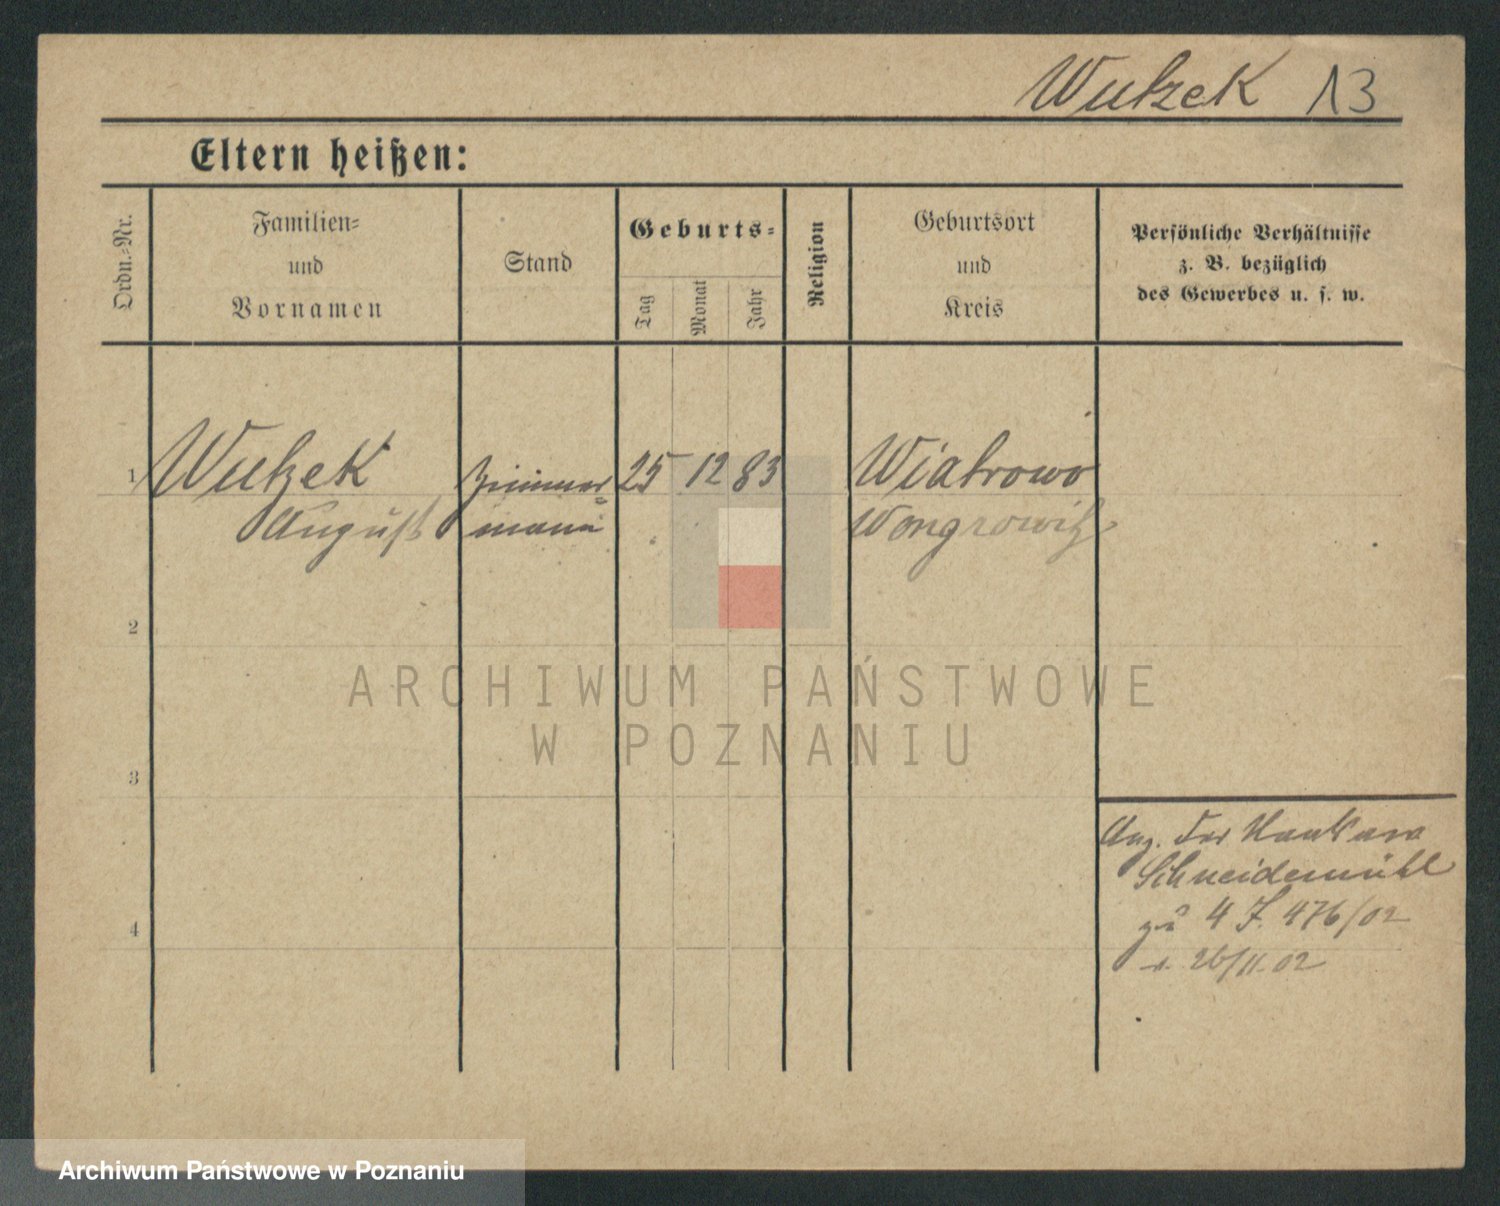 Wutzek 13
Eltern heißen:
Ordn.-Nr.
Familien-
und
Vornamen
Stand
Geburts-
Tag
Monat
Jahr
Religion
Geburtsort
und
Kreis
Persönliche Verhältnisse
z. B. bezüglich
des Gewerbes u. s. w.
1 Wutzek Zimmer- 25 12 83 Wiatrowo
August mann Wongrowitz
2
ARCHIWUM PAŃSTWOWE
W POZNANIU
3
4
Schneidemühl
zu 4 J. 476/02
v. 26/11.02
Archiwum Państwowe w Poznaniu